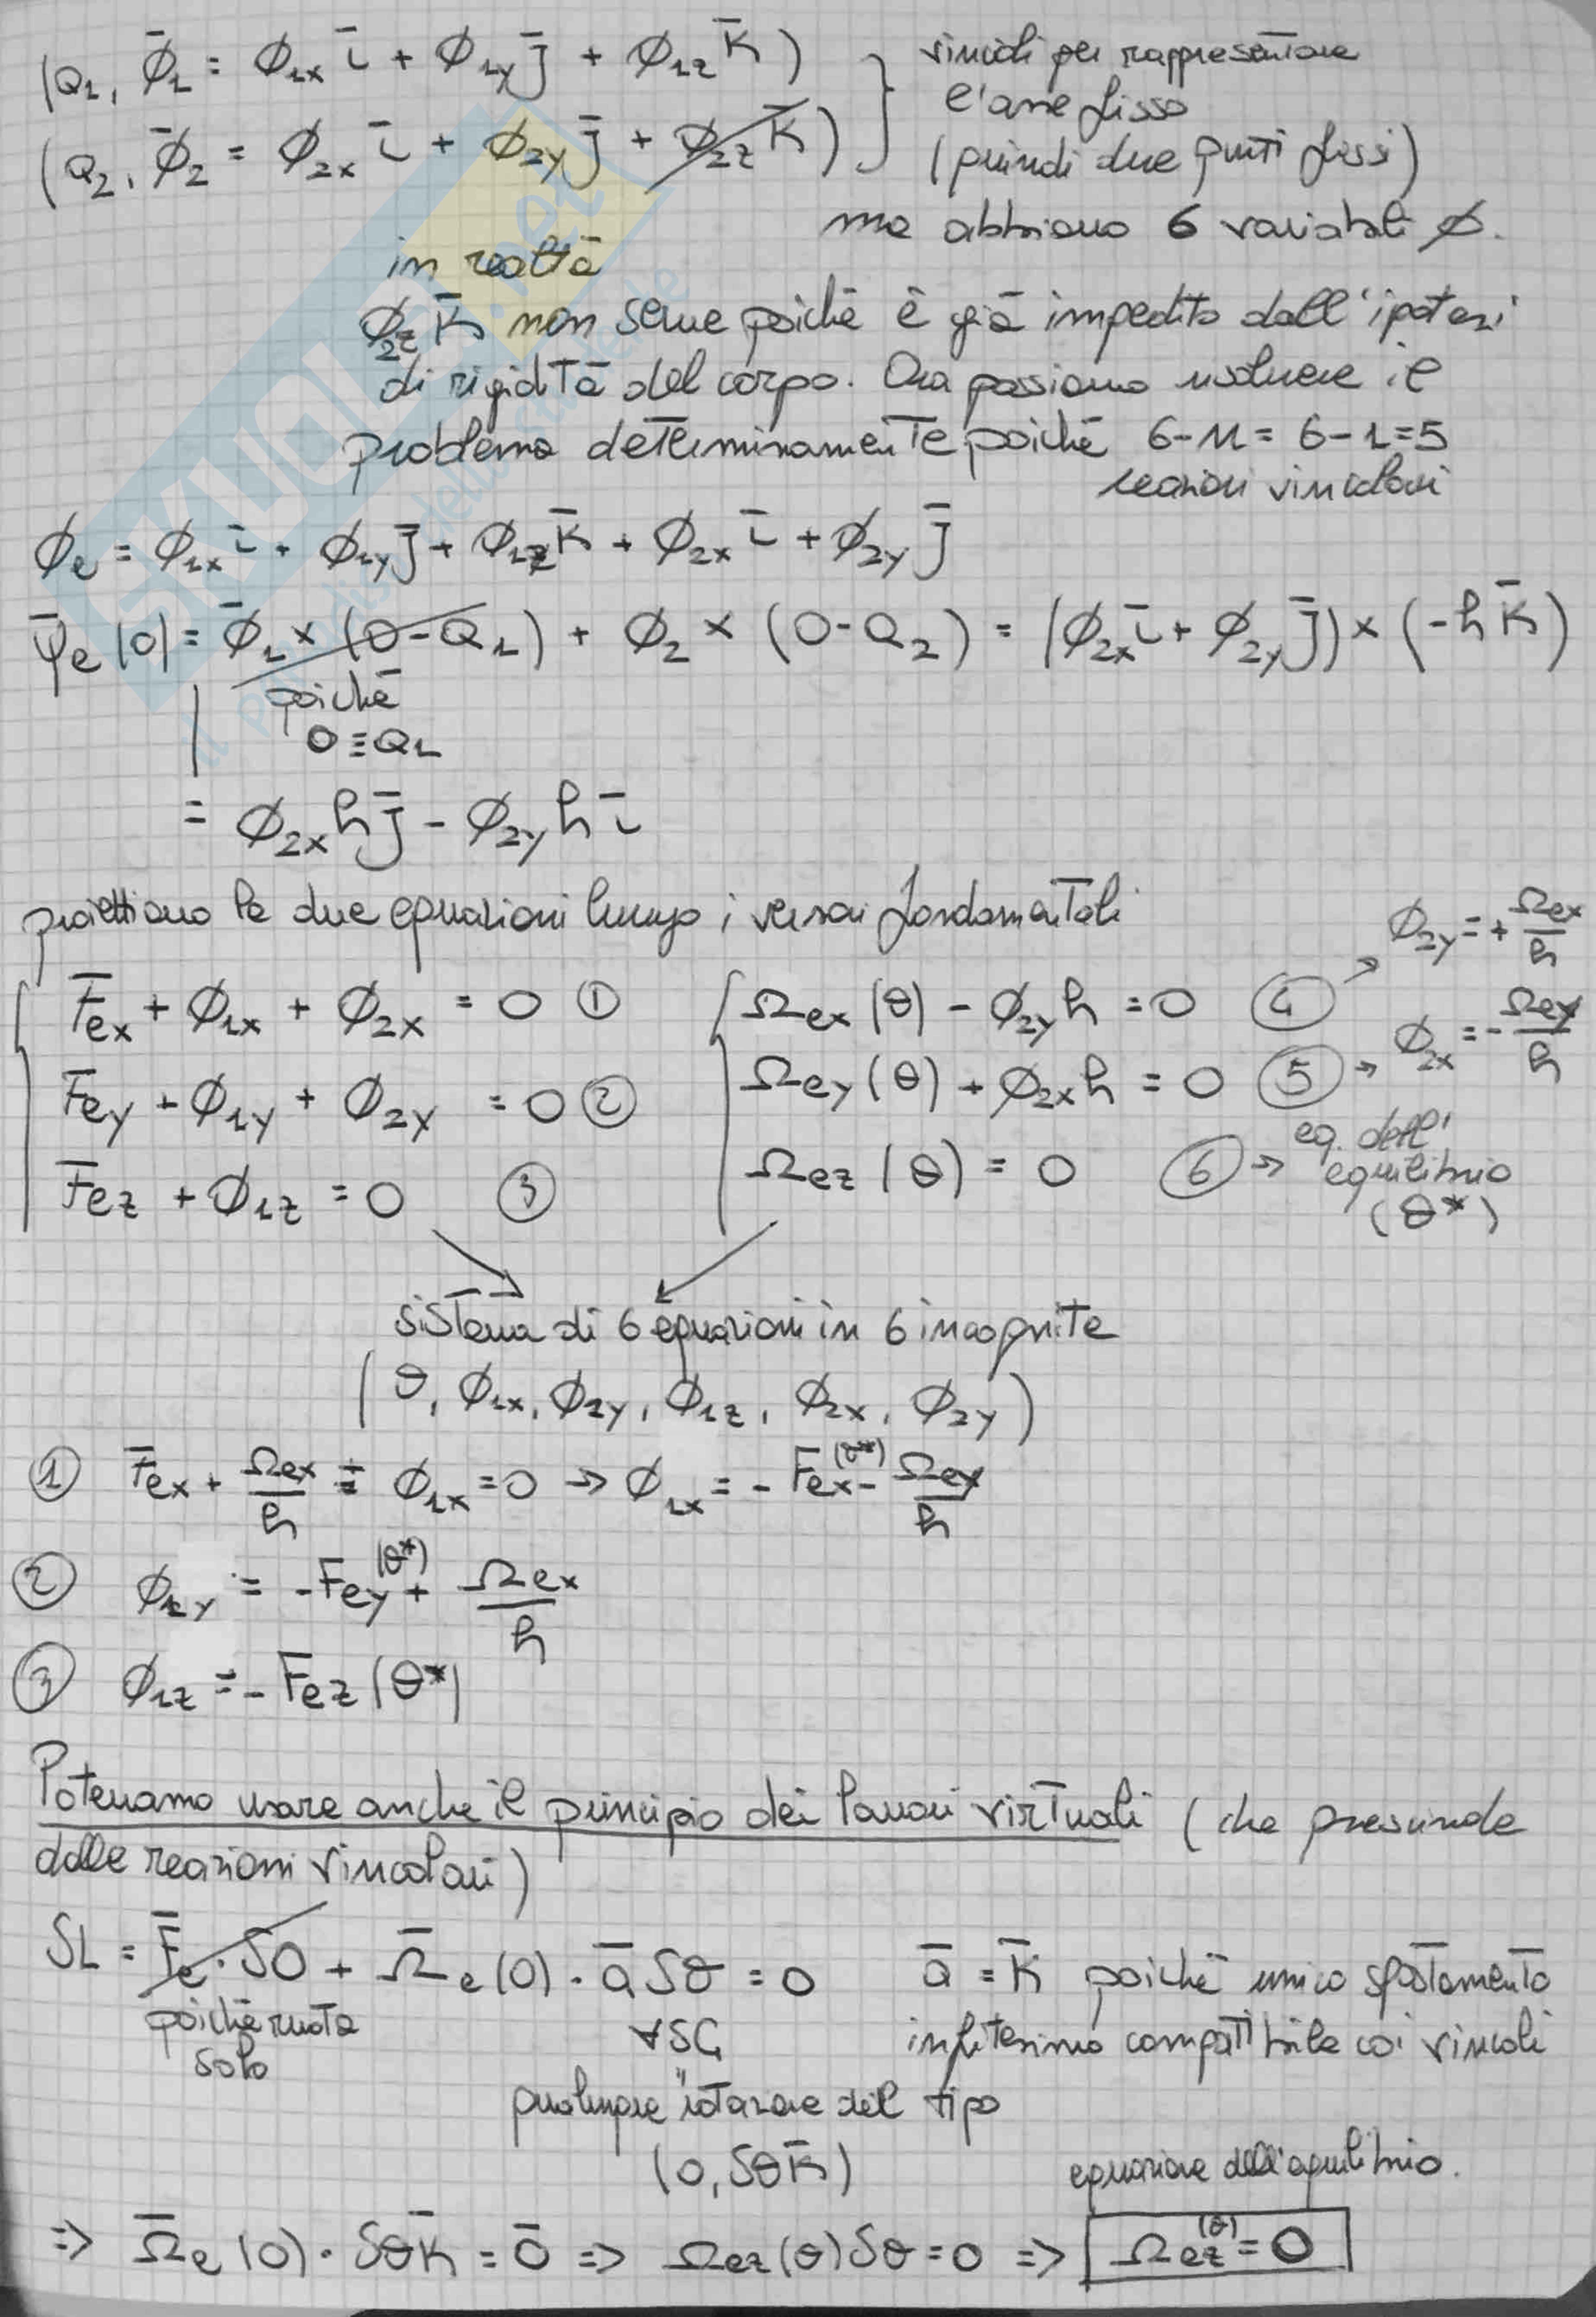 (Q₁, Φ̄₁ = Φ₁ₓ ī + Φ₁y j̄ + Φ₁z k̄)
(Q₂, Φ̄₂ = Φ₂ₓ ī + Φ₂y j̄ + Φ₂z k̄)
vincoli per rappresentare
l'asse fisso
(quindi due punti fissi)
ma abbiamo 6 variabili Φ.
in realtà
Φ₂z k̄ non serve poiché è già impedito dall'ipotesi
di rigidità del corpo. Ora possiamo risolvere il
problema determinamente poiché 6-n = 6-1=5
reazioni vincolari
Φe = Φ₁ₓ ī + Φ₁y j̄ + Φ₁z k̄ + Φ₂ₓ ī + Φ₂y j̄
Ψ̄e (O) = Φ̄₁ × (O-Q₁) + Φ₂ × (O-Q₂) = (Φ₂ₓ ī + Φ₂y j̄) × (-h k̄)
poiché
O≡Q₁
= Φ₂ₓ h j̄ - Φ₂y h ī
proiettiamo le due equazioni lungo i versori fondamentali
F̄ex + Φ₁ₓ + Φ₂ₓ = 0 ①
Fey + Φ₁y + Φ₂y = 0 ②
F̄ez + Φ₁z = 0 ③
Ωex (θ) - Φ₂y h = 0 ④ → Φ₂y = + Ωex/h
Ωey (θ) + Φ₂ₓ h = 0 ⑤ → Φ₂ₓ = - Ωey/h
Ωez (θ) = 0 ⑥ → eq. dell'
equilibrio
(θ*)
sistema di 6 equazioni in 6 incognite
(θ, Φ₁ₓ, Φ₂y, Φ₁z, Φ₂ₓ, Φ₂y)
① F̄ex + Ωex/h = Φ₁ₓ = 0 → Φ₁ₓ = - Fex (θ*) - Ωey/h
② Φ₁y = - Fey (θ*) + Ωex/h
③ Φ₁z = - F̄ez (θ*)
Potevamo usare anche il principio dei lavori virtuali (che prescinde
dalle reazioni vincolari)
δL = F̄e · δO + Ω̄e (O) · ā δθ = 0 ā = k̄ poiché unico spostamento
poiché ruota
solo
∀δG
infitesimo compatibile coi vincoli
qualunque rotazione del tipo
(0, δθ k̄)
equazione dell'equilibrio.
⇒ Ω̄e (O) · δθ k̄ = 0̄ ⇒ Ωez (θ) δθ = 0 ⇒ Ωez (θ) = 0
SKUOLA.net
il paradiso dello studente